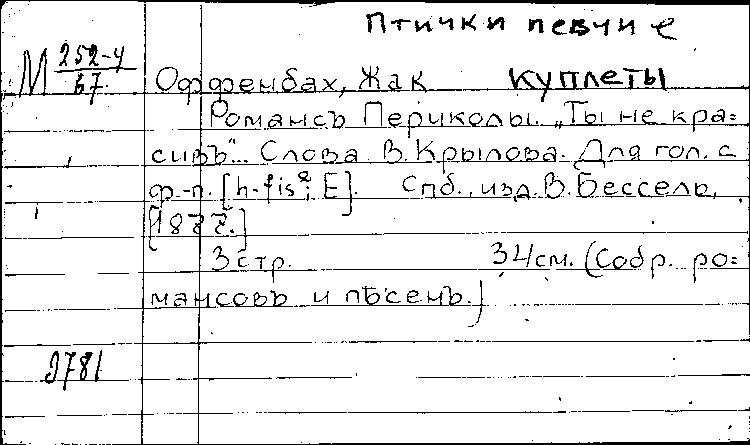 Птички певчие
М 252-У
67.
Оффенбах, Жак КУПЛЕТЫ
Романсъ Периколы. „Ты не кра=
сивъ"... Слова В. Крылова. Для гол. с
ф.-п. [h-fis²; E]. Спб., изд. В. Бессель,
[1877.]
3 стр. 34 см. (Собр. ро=
мансовъ и пѣсенъ.)
9781